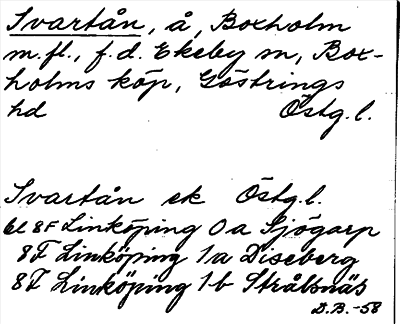 Svartån, å, Boxholm
m.fl., f.d. Ekeby sn, Box-
holms köp, Göstrings
hd Östg.l.
Svartån ek Östg.l.
bl 8F Linköping 0a Sjögarp
8F Linköping 1a Diseberg
8F Linköping 1b Strålsnäs
D.B.-58